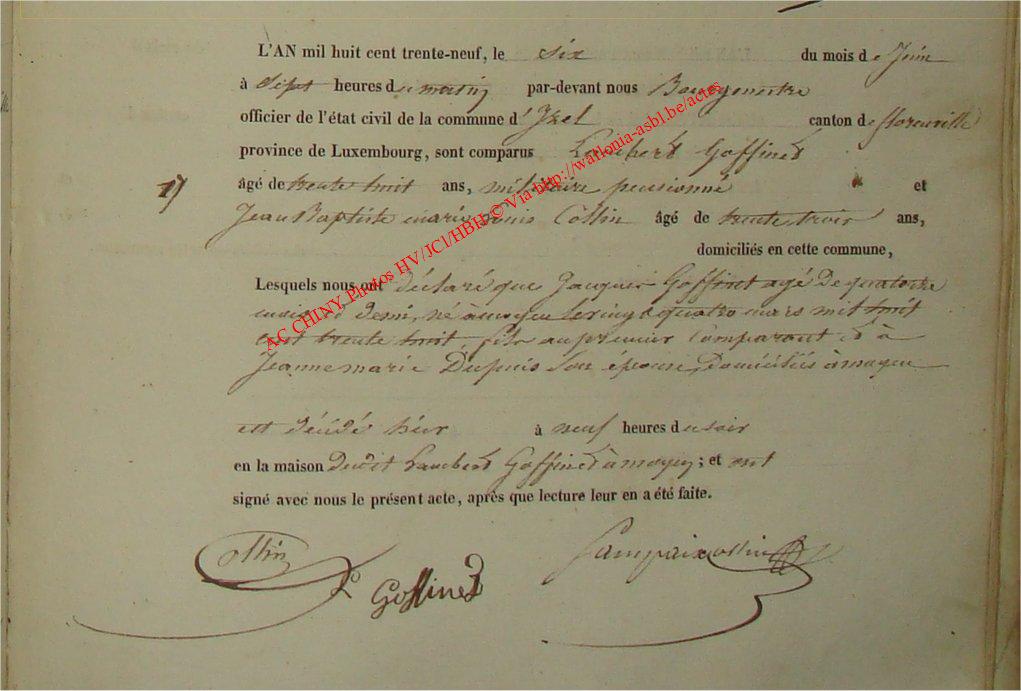 L'AN mil huit cent trente-neuf, le six du mois de Juin
à Sept heures du matin par-devant nous Bourgmestre
officier de l'état civil de la commune d'Izel canton de florenville
province de Luxembourg, sont comparus Lambert Goffinet
17 âgé de trente huit ans, militaire pensionné et
Jean Baptiste marie Collin âgé de trente trois ans,
domiciliés en cette commune,
Lesquels nous ont déclaré que Jacques Goffinet agé De quatorze
mois et demi, né à moyen le vingt quatre mars mil huit
cent trente huit, fils au premier Comparant et à
Jeanne marie Dupuis Son épouse, domiciliés à moyen
est décédé hier à neuf heures du soir
en la maison Dudit Lambert Goffinet à moyen; et ont
signé avec nous le présent acte, après que lecture leur en a été faite.
Collin L Goffinet Lampaix Collin
AC CHINY, Photos HV/JCl/HBH © Via http://wallonia-asbl.be/actes